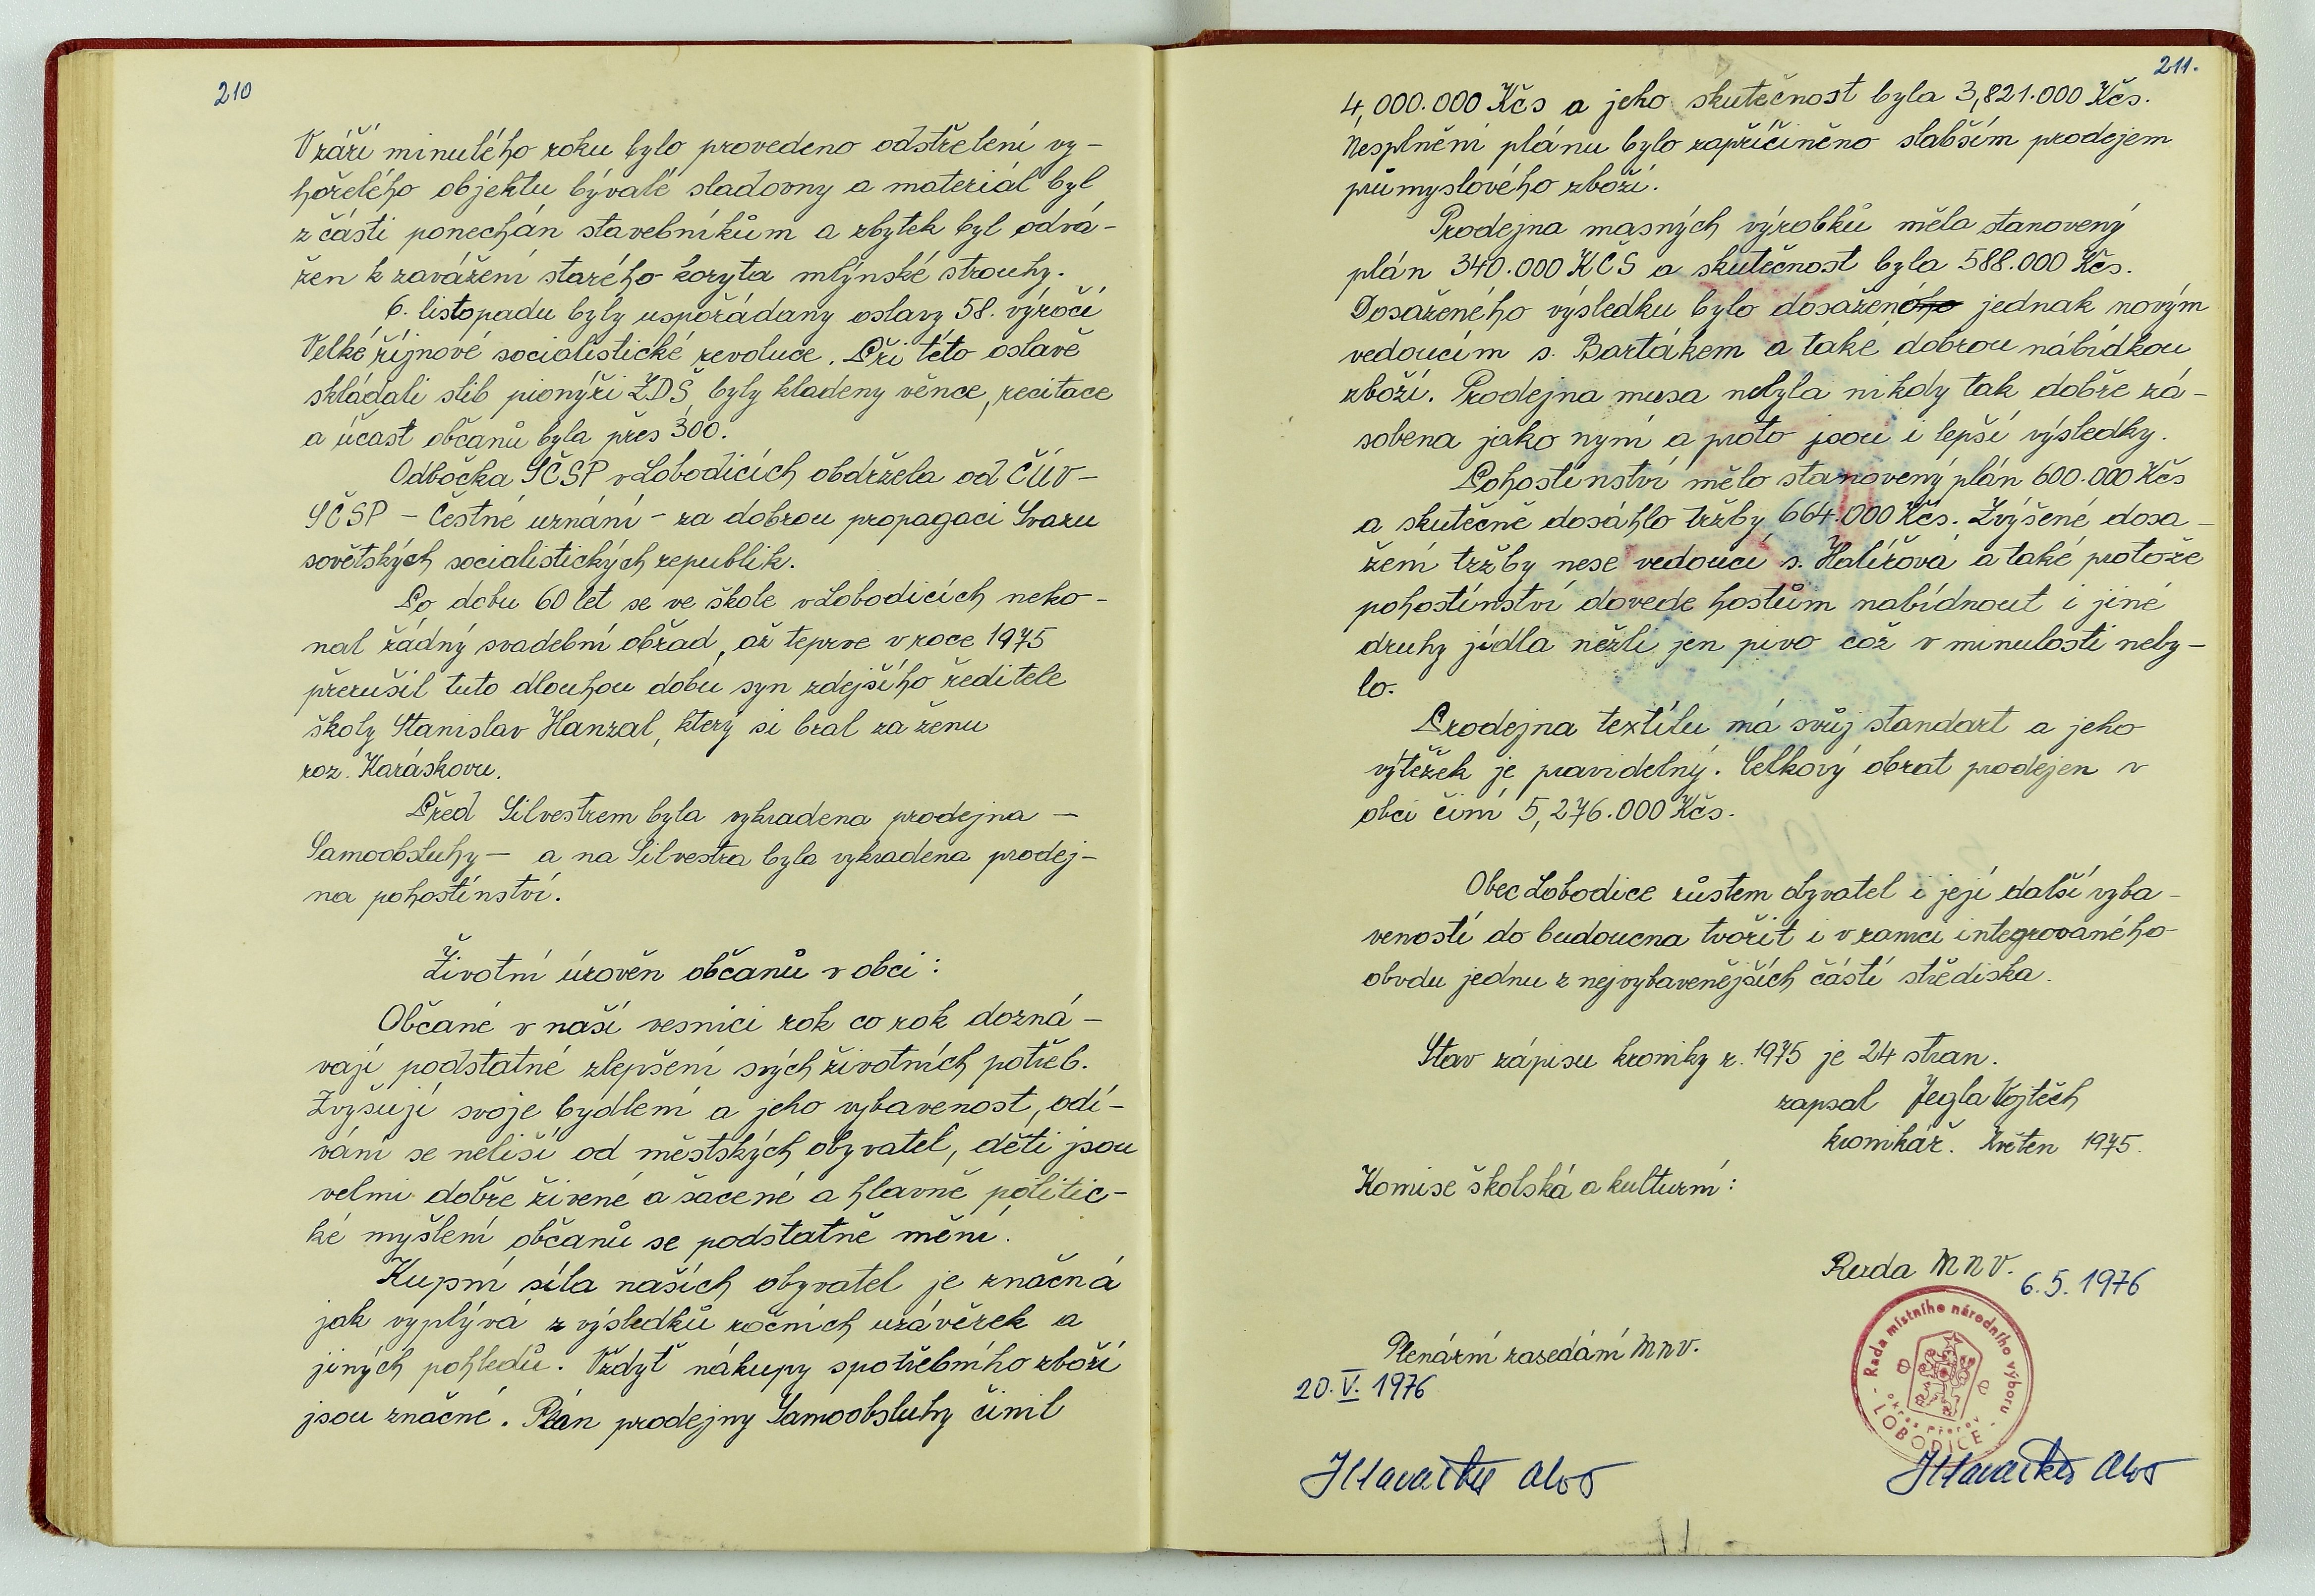 210
V září minulého roku bylo provedeno odstřelení vy-
hořelého objektu bývalé sladovny a materiál byl
z části ponechán stavebníkům a zbytek byl odvá-
žen k zavážení starého koryta mlýnské strouhy.
6. listopadu byly uspořádany oslavy 58. výročí
Velké říjnové socialistické revoluce. Při této oslavě
skládali slib pionýři ZDŠ, byly kladeny věnce, recitace
a účast občanů byla přes 300.
Odbočka SČSP v Lobodicích obdržela od ČÚV-
SČSP - Čestné uznání - za dobrou propagaci Svazu
sovětských socialistických republik.
Po dobu 60 let se ve škole v Lobodicích neko-
nal žádný svadební obřad, až teprve v roce 1975
přerušil tuto dlouhou dobu syn zdejšího ředitele
školy Stanislav Hanzal, který si bral za ženu
roz. Karáskovu.
Před Silvestrem byla vykradena prodejna -
Samoobsluhy - a na Silvestra byla vykradena prodej-
na pohostinství.
Životní úrověn občanů v obci:
Občané v naší vesnici rok co rok dozná-
vají podstatné zlepšení svých životních potřeb.
Zvyšují svoje bydlení a jeho vybavenost, odí-
vání se neliší od městských obyvatel, děti jsou
velmi dobře živené a šacené a hlavně politic-
ké myšlení občanů se podstatně mění.
Kupní síla našich obyvatel je značná
jak vyplývá z výsledků ročních uzávěrek a
jiných pohledů. Vždyť nákupy spotřebního zboží
jsou značné. Plán prodejny Samoobsluhy činil
211.
4,000.000 Kčs a jeho skutečnost byla 3,821.000 Kčs.
Nesplnění plánu bylo zapříčiněno slabším prodejem
průmyslového zboží.
Prodejna masných výrobků měla stanovený
plán 340.000 KČS a skutečnost byla 588.000 Kčs.
Dosaženého výsledku bylo dosaženoho jednak novým
vedoucím s. Bartákem a také dobrou nábídkou
zboží. Prodejna masa nebyla nikdy tak dobře zá-
sobena jako nyní a proto jsou i lepší výsledky.
Pohostinství mělo stanovený plán 600.000 Kčs
a skutečně dosáhlo tržby 664.000 Kčs. Zvýšené dosa-
žení tržby nese vedoucí s. Halířová a také protože
pohostinství dovede hostům nabídnout i jiné
druhy jídla nežli jen pivo což v minulosti neby-
lo.
Prodejna textilu má svůj standart a jeho
výtěžek je pravidelný. Celkový obrat prodejen v
obci činí 5,276.000 Kčs.
Obec Lobodice růstem obyvatel i její další vyba-
veností do budoucna tvořit i v ramci integrovaného
obvodu jednu z nejvybavenějších částí střediska.
Stav zápisu kroniky r. 1975 je 24 stran.
zapsal Jegla Vojtěch
kronikář. Květen 1975.
Komise školská a kulturní:
Rada MNV.
6.5.1976
Rada místního národního výboru
okres Přerov
LOBODICE
Plenární zasedání MNV.
20. V. 1976